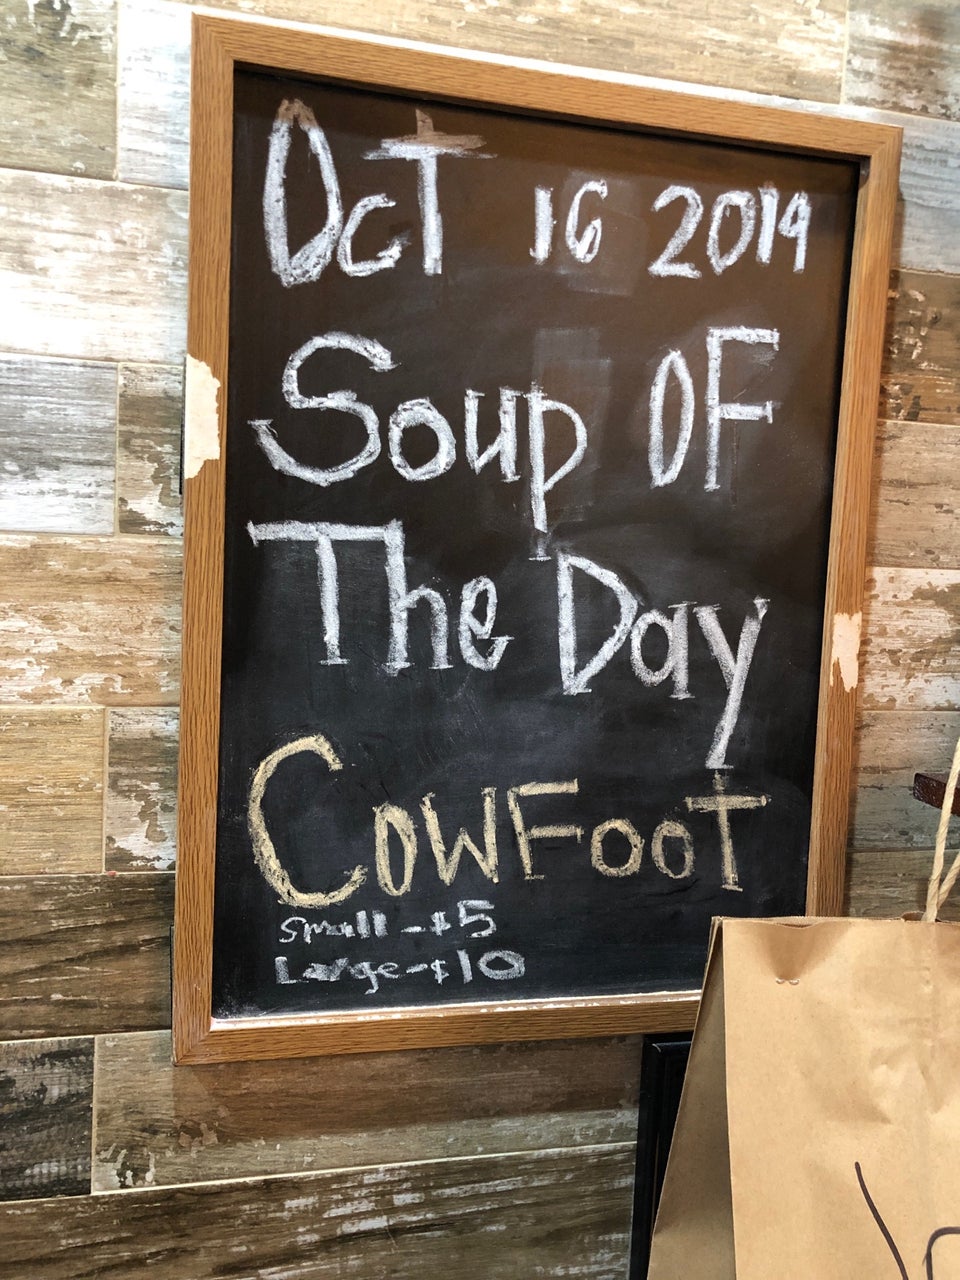 Oct 16 2019
Soup OF
The Day
COWFOOT
Small - $5
Large - $10